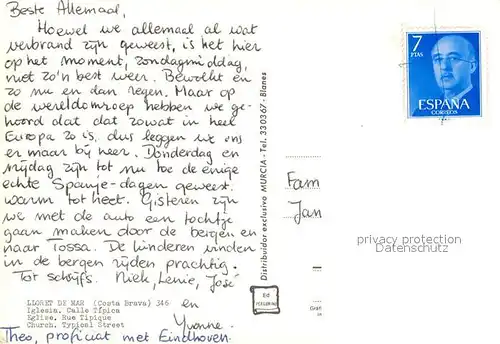 Beste Allemaal,
Hoewel we allemaal al wat
verbrand zijn geweest, is het hier
op het moment, zondagmiddag,
niet zo'n best weer. Bewolkt en
zo nu en dan regen. Maar op
de wereldomroep hebben we ge-
hoord dat dat zowat in heel
Europa zo is, dus leggen we ons
er maar bij neer. Donderdag en
vrijdag zijn tot nu toe de enige
echte Spanje-dagen geweest.
warm tot heet. Gisteren zijn
we met de auto een tochtje
gaan maken door de bergen en
naar Tossa. De kinderen vinden
in de bergen rijden prachtig.
Tot schrijfs. Niek, Lenie, José
en
Yvonne.
Theo, proficiat met Eindhoven.
LLORET DE MAR (Costa Brava) 346
Iglesia. Calle Típica
Eglise. Rue Tipique
Church. Typical Street
Distribuidor exclusivo MURCIA - Tel. 330367 - Blanes
Ed
7
PTAS
ESPAÑA
CORREOS
Fam
Jan
privacy protection
Datenschutz